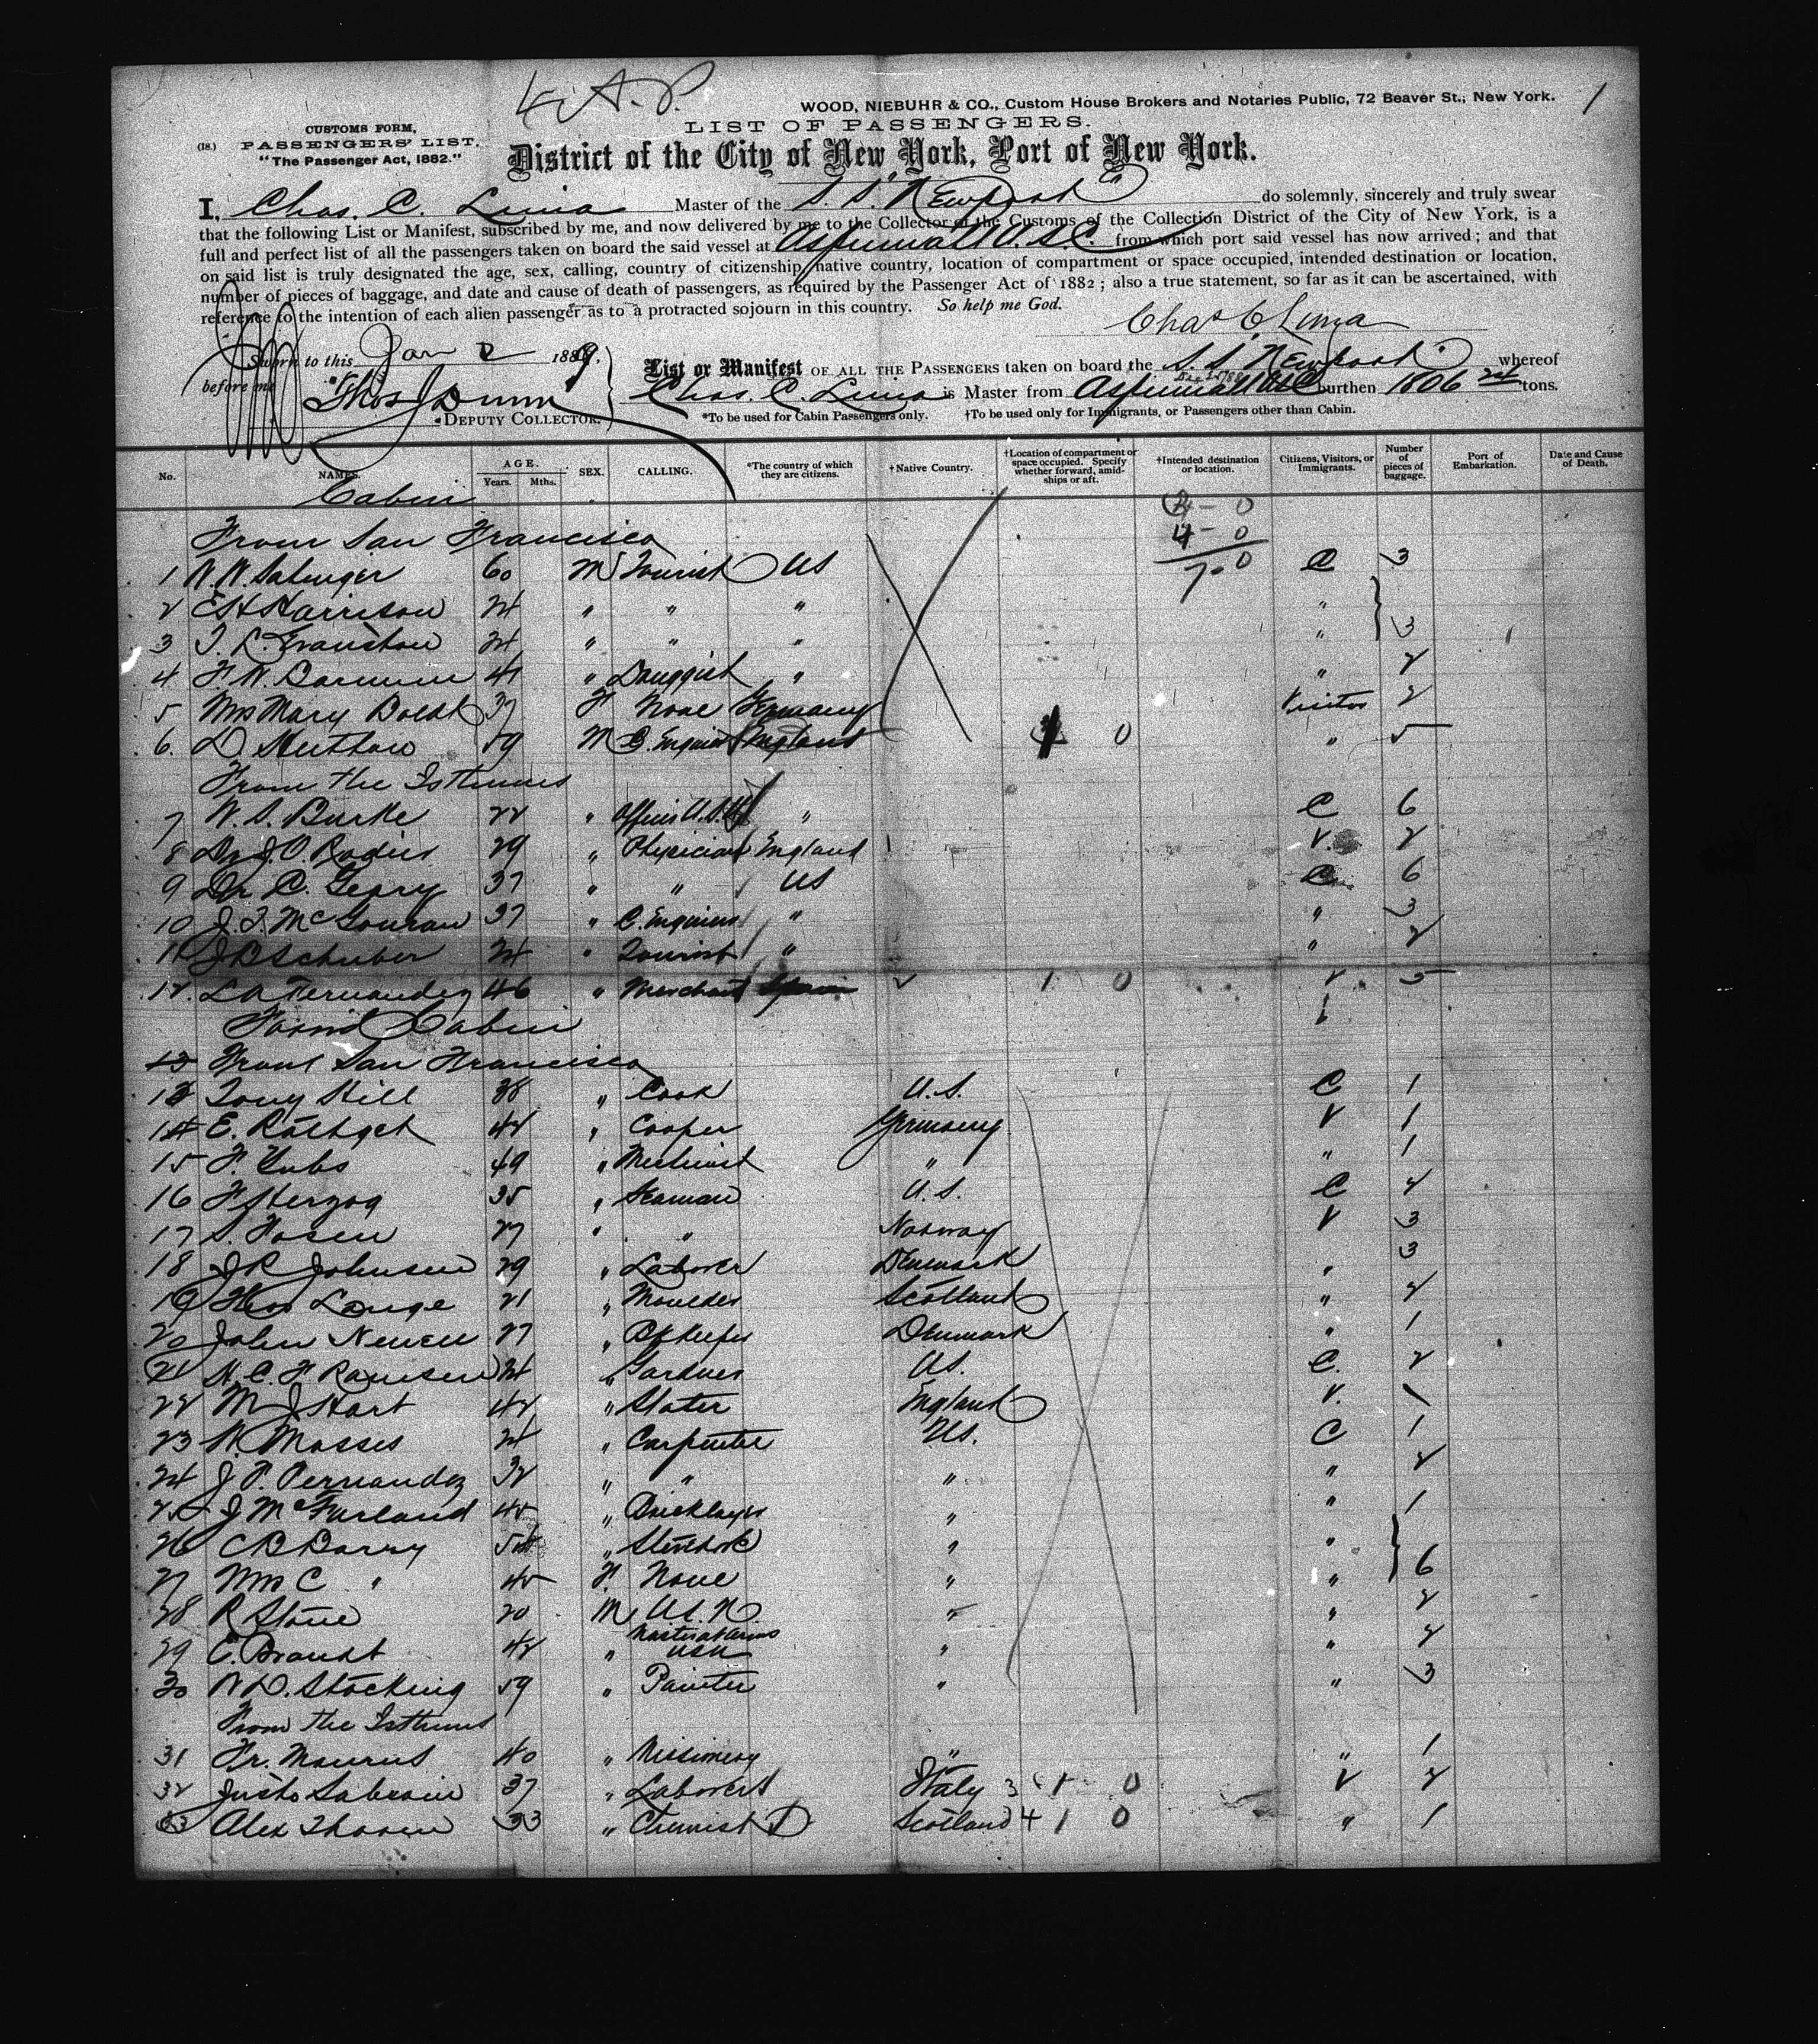 L. A. P.
WOOD, NIEBUHR & CO., Custom House Brokers and Notaries Public, 72 Beaver St., New York. 1
CUSTOMS FORM,
(18.) PASSENGERS' LIST.
"The Passenger Act, 1882."
LIST OF PASSENGERS.
District of the City of New York, Port of New York.
I, Chas. C. Lima Master of the S. S. "Newport" do solemnly, sincerely and truly swear
that the following List or Manifest, subscribed by me, and now delivered by me to the Collector of the Customs of the Collection District of the City of New York, is a
full and perfect list of all the passengers taken on board the said vessel at Aspinwall U.S.C. from which port said vessel has now arrived; and that
on said list is truly designated the age, sex, calling, country of citizenship, native country, location of compartment or space occupied, intended destination or location,
number of pieces of baggage, and date and cause of death of passengers, as required by the Passenger Act of 1882; also a true statement, so far as it can be ascertained, with
reference to the intention of each alien passenger as to a protracted sojourn in this country. So help me God.
Chas C Lima
Sworn to this Jan 2 1889.
before me
Thos J Dunn
DEPUTY COLLECTOR.
List or Manifest OF ALL THE PASSENGERS taken on board the S. S. "Newport" whereof
Chas. C. Lima is Master from Aspinwall USC burthen 1806 tons.
*To be used for Cabin Passengers only. †To be used only for Immigrants, or Passengers other than Cabin.
No. NAMES. AGE. Years. Mths. SEX. CALLING. *The country of which they are citizens. †Native Country. †Location of compartment or space occupied. Specify whether forward, amidships or aft. †Intended destination or location. Citizens, Visitors, or Immigrants. Number of pieces of baggage. Port of Embarkation. Date and Cause of Death.
Cabin
4 - 0
From San Francisco
7 - 0
1 60 M Tourist US C 3
2 E H Harrison 24 " " " "
3 24 " " " " 3
4 41 " Druggist " " 2
5 Mrs Mary Boldt 37 F None Germany Visitor 2
6. 59 M C. Engineer England 0 " 5
From the Isthmus
7 W. S. Burke 22 " Officer U.S.N " C 6
8 Dr J. O. 29 " Physician England V. 2
9 Dr C. Geary 37 " " US C 6
10 J. T. McGouran 37 " C. Engineer " " 3
11 J B Schuber 24 " Tourist " " 2
12. L A Fernandez 46 " Merchant Spain 1 0 V 5
Cabin
13 From San Francisco
13 Tony Hill 38 " Cook U.S. C 1
14 E. 42 " Cooper Germany V 1
15 F. 49 " Machinist " " 1
16 F Herzog 35 " Seaman U.S. C 2
17 S. 27 " " Norway V 3
18 29 " Laborer Denmark " 3
19 Lange 21 " Moulder Scotland " 2
20 John 27 " Bkkeeper Denmark " 1
21 24 " Gardner US. C. 2
22 M J Hart 42 " Slater England V. \
23 24 " Carpenter US. C 1
24 J. P. Fernandez 32 " " " " 2
25 J McFarland 45 " Bricklayer " " 1
26 C B Barry " " "
27 Mrs C " 45 F. None " " 6
28 R Stone 20 M U.S.N. " " 2
29 C. Brandt 42 " Master at Arms USN " " 2
30 W D. Stocking 59 " Painter " " 3
From the Isthmus
31 Fr. Maurus 40 " Missionary " " 1
32 Justo 37 " Laborer Italy 3 1 0 V 2
33 Alex 33 " Chemist Scotland 4 1 0 " 1